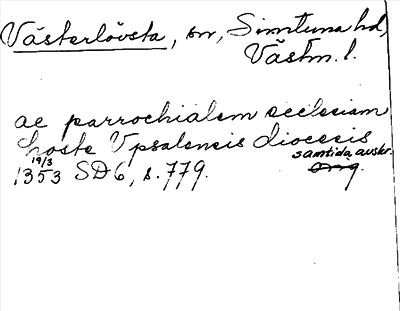 Västerlövsta, sn, Simtuna hd,
Västm. l.
ac parrochialem ecclesiam
hoste Vpsalensis diocesis
19/3 samtida avskr.
1353 SD 6, s. 779. orig.